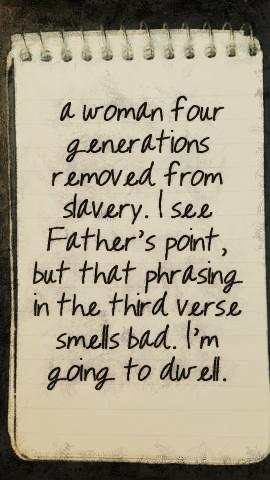 a woman four
generations
removed from
slavery. I see
Father's point,
but that phrasing
in the third verse
smells bad. I'm
going to dwell.